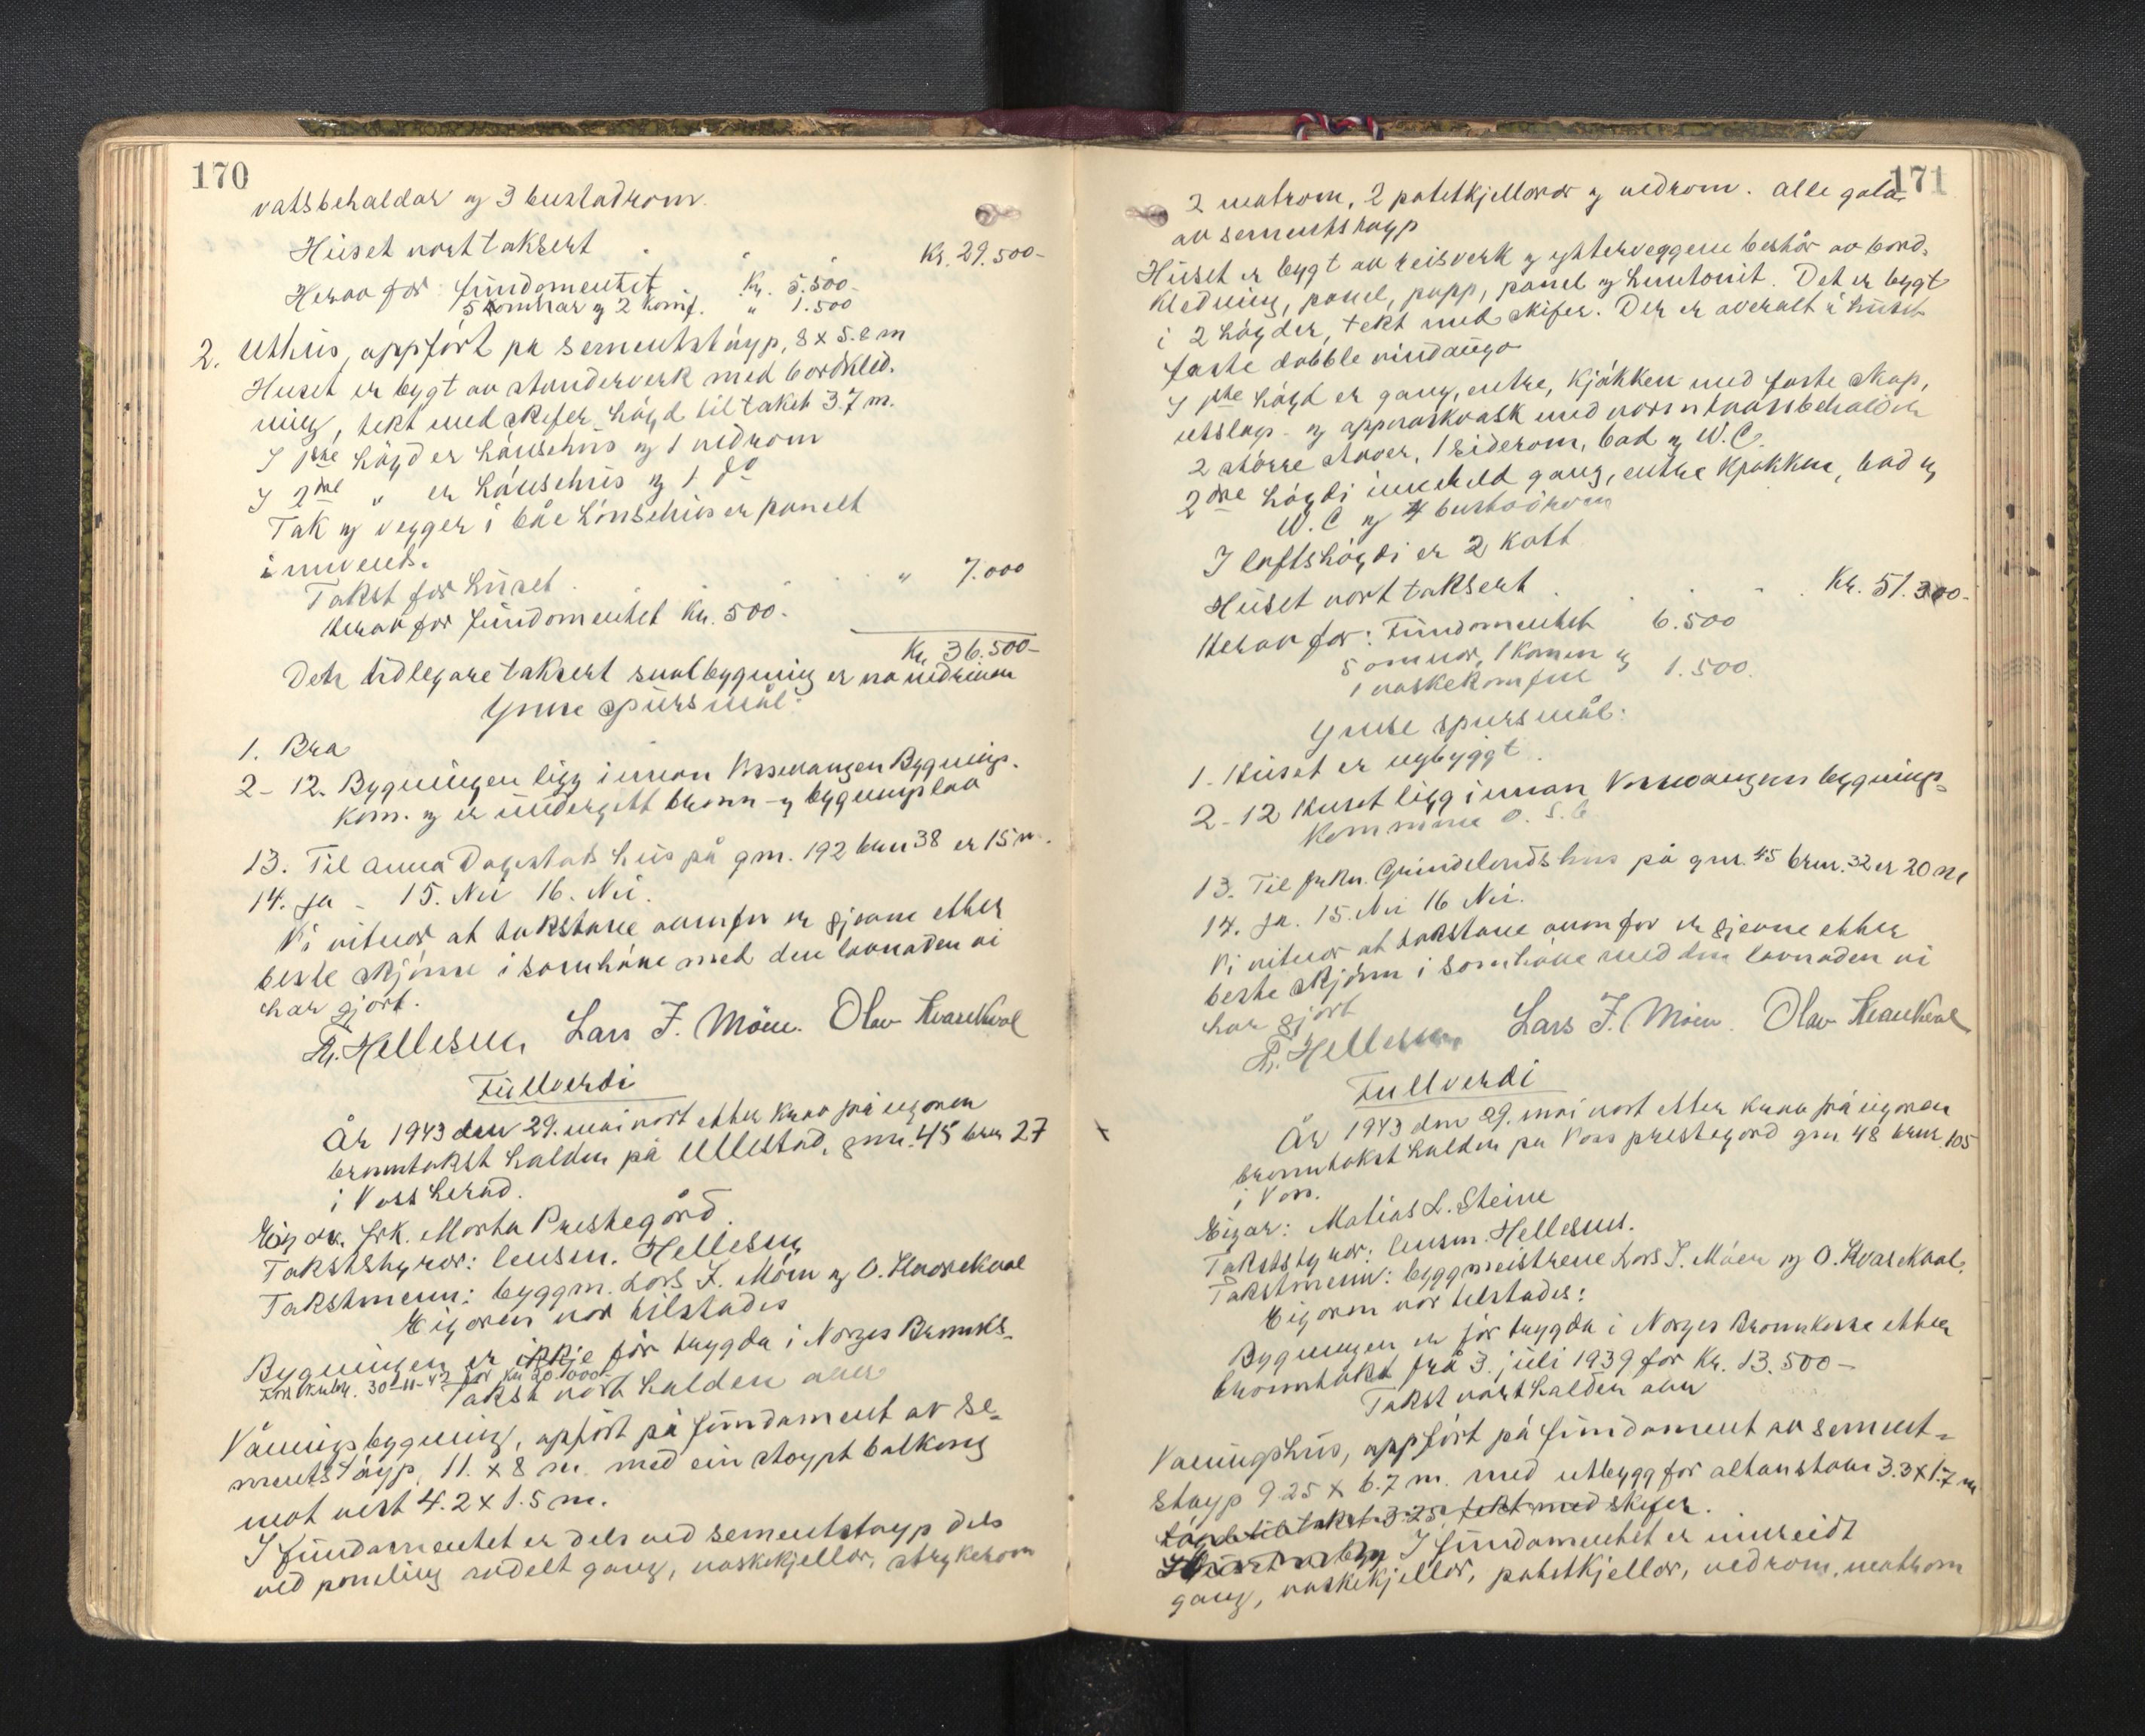 170
vatsbehaldar og 3 bustadrom.
Huset vart taksert Kr. 29.500-
Herav for fundamentet Kr. 5.500-
5 omnar og 2 komf. " 1.500
2. Uthus, oppfört på sementstöyp, 8 x 5.8 m
Huset er bygt av standerverk med bordkled-
ning, tekt med skifer. Högd til taket 3.7 m.
I 1ste högd er hönsehus og 1 vedrom
I 2dre " er hönsehus og 1 do
Tak og vegger i båe hönsehus er panelt
innvend.
Takst for huset " 7.000
Herav for fundamentet Kr. 500-
Kr. 36.500-
Den tidlegare taksert bygning er no nedriven
Ymse spursmål:
1. Bra
2-12. Bygningen ligg innan Vossevangen Bygnings-
kom. og er undergitt brann- og bygningslov
13. Til Anna Dagestads hus på gnr. 192 bnr 38 er 15 m.
14. Ja - 15. Nei 16. Nei.
Vi vitnar at takstane ovanfor er gjevne etter
beste skjönn i samhöve med den lovnaden vi
har gjort.
Hellesnes Lars J. Möen. Olav Kvarekval
Fullverdi
År 1943 den 29. mai vart etter krav frå eigaren
branntakst halden på Ullestad, gnr. 45 bnr 27
i Voss herad.
Eigar. frk. Marta Prestegård.
Takststyrar: lensm. Hellesnes
Takstmenn: byggm. Lars J. Möen og O. Kvarekval
Eigaren var tilstades
Bygningen er ikkje för trygda i Norges Brannks.
30-11-42 for kr 20.000-
Takst vart halden over
Våningsbygning, oppfört på fundament av se-
mentstöyp, 11. x 8 m. med ein stöypt balkong
mot vest 4.2 x 1.5 m.
I fundamentet er dels ved sementstöyp dels
ved paneling avdelt gang, vaskekjellar, strykerom
171
2 matrom, 2 potetkjellarar og vedrom. Alle golv
av sementstöyp
Huset er bygt av reisverk og ytterveggene består av bord-
kledning, panel, papp, panel og huntonit. Det er bygt
i 2 högder, tekt med skifer. Der er overalt i huset
faste dobble vindaugo
I 1ste högd er gang, entre, kjökken med faste skap,
utslags- og oppvaskvask med varmtvannsbehaldar
2 större stover, 1 siderom, bad og W.C.
2dre högdi inneheld gang, entre kjökken, bad og
W.C og 4 bustadrom
I loftshögdi er 2 kott
Huset vart taksert Kr. 51.300-
Herav for: Fundamentet 6.500
5 omnar, 1 kamin og
1 vaskekomfur 1.500.
Ymse spursmål:
1. Huset er nybyggt
2-12 Huset ligg innan Vossevangens bygnings-
kommune o. s. b
13. Til Grindelands hus på gnr. 45 bnr. 32 er 20 m
14. Ja. 15. Nei 16 Nei.
Vi vitnar at takstane ovanfor er gjevne etter
beste skjönn i samhöve med den lovnaden vi
har gjort
Hellesnes Lars J. Möen. Olav Kvarekval
Fullverdi
År 1943 den 29. mai vart etter krav frå eigaren
branntakst halden på Voss prestegard gnr 48 bnr. 105
i Voss.
Eigar: Matias L. Steine
Takststyrar: lensm. Hellesnes.
Takstmenn: byggmeistrene Lars J. Möen og O. Kvarekval.
Eigaren var tilstades:
Bygningen er för trygda i Norges Brannkasse etter
branntakst frå 3. juli 1939 for Kr. 13.500-
Takst vart halden over
Våningshus, oppfört på fundament av sement-
stöyp 9.25 x 6.7 m. med utbygg for altanstove 3.3 x 1.7 m
Högd til taket 3.25, tekt med skifer.
Huset er byg I fundamentet er innreidt
gang, vaskekjellar, potetkjellar, vedrom, matrom